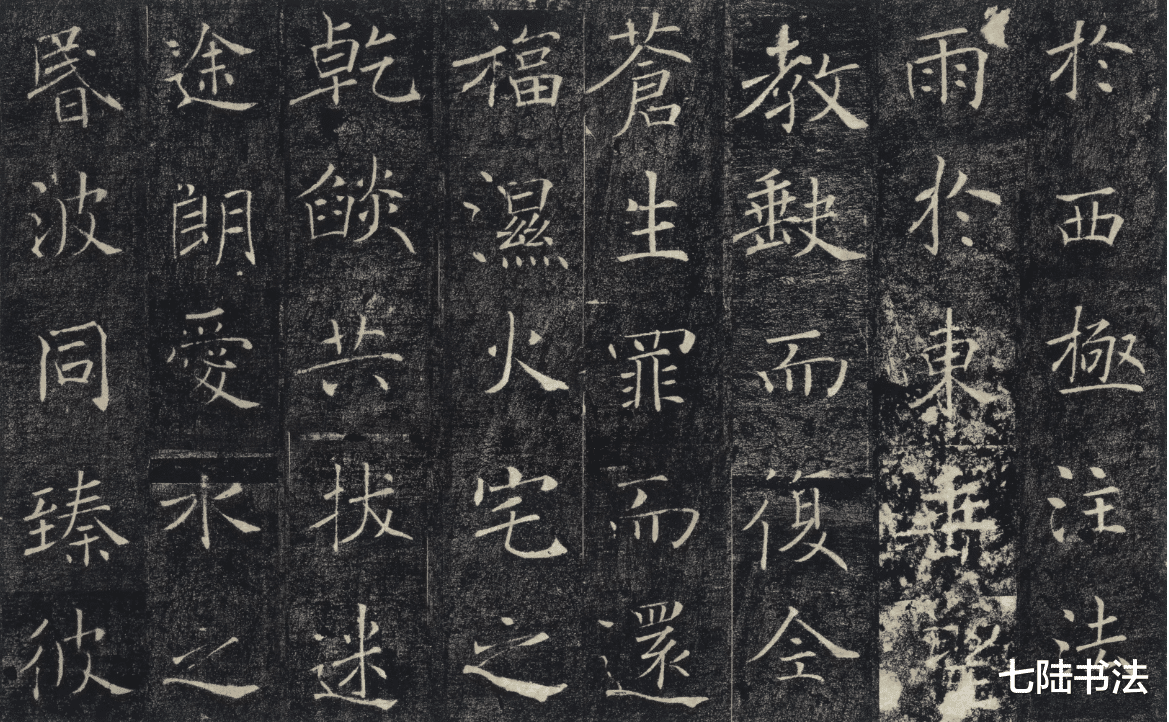 於西極注法
雨於東垂
教缺而復全
蒼生罪而還
福濕火宅之
乾燄共拔迷
途朗愛水之
昬波同臻彼
七陆书法